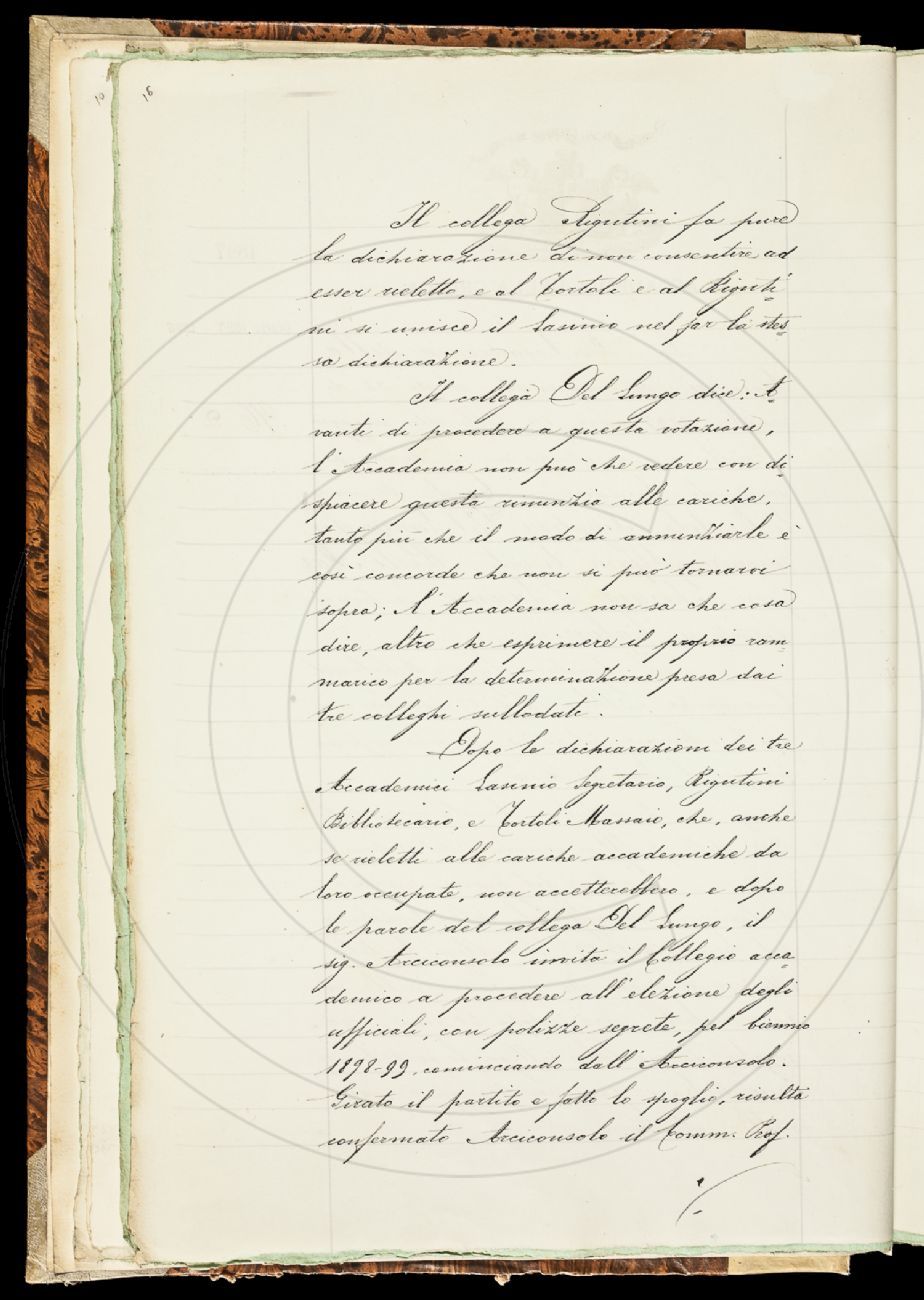 10
18
Il collega Rigutini fa pure
la dichiarazione di non consentire ad
esser rieletto, e al Tortoli e al Riguti-
ni si unisce il Lasinio nel far la stes-
sa dichiarazione.
Il collega Del Lungo dice: A-
vanti di procedere a questa votazione,
l'Accademia non può che vedere con di-
spiacere questa rinunzia alle cariche,
tanto più che il modo di annunziarle è
così concorde che non si può tornarvi
sopra; l'Accademia non sa che cosa
dire, altro che esprimere il proprio ram-
marico per la determinazione presa dai
tre colleghi sullodati.
Dopo le dichiarazioni dei tre
Accademici Lasinio Segretario, Rigutini
Bibliotecario, e Tortoli Massaio, che, anche
se rieletti alle cariche accademiche da
loro occupate, non accetterebbero, e dopo
le parole del collega Del Lungo, il
sig. Arciconsolo invita il Collegio acca-
demico a procedere all'elezione degli
ufficiali, con polizze segrete, pel biennio
1898-99, cominciando dall'Arciconsolo.
Girato il partito e fatto lo spoglio, risulta
confermato Arciconsolo il Comm. Prof.
./.